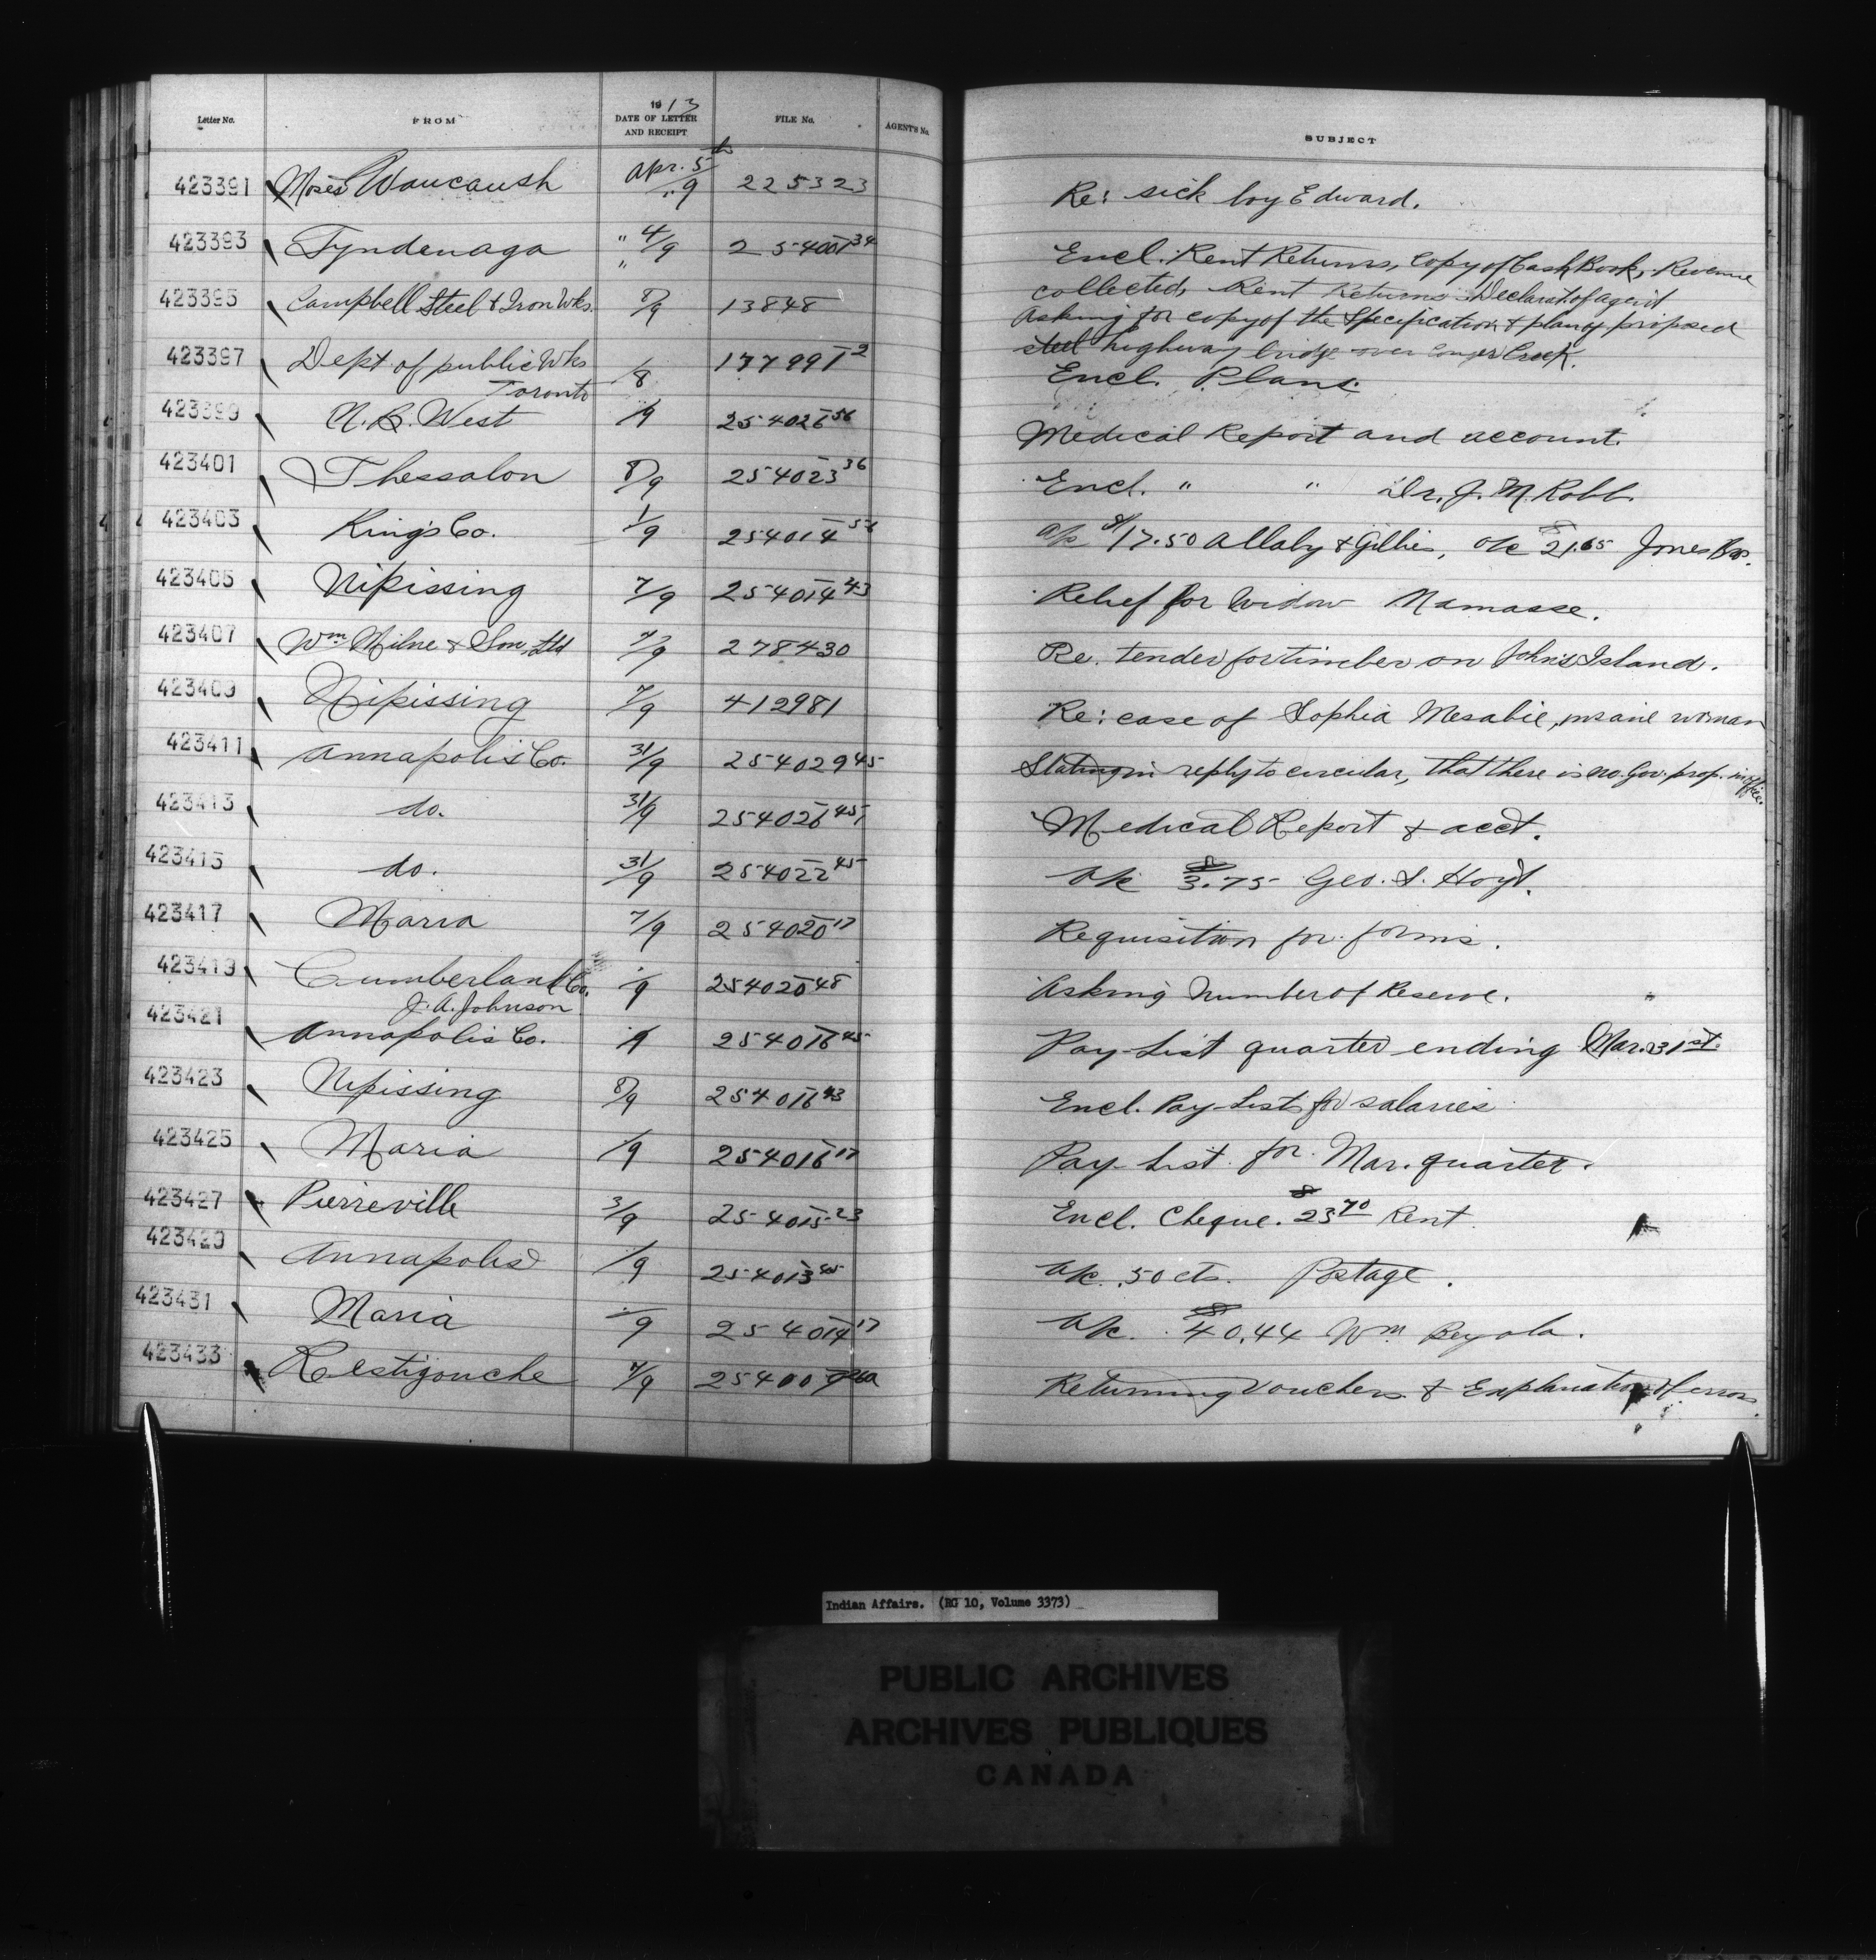 1913
Letter No. FROM DATE OF LETTER AND RECEIPT FILE No. AGENT'S No. SUBJECT
423391 Moses Waucaush Apr. 5th/9 225323 Re: sick boy Edward.
423393 Tyndenaga " 4/9 254001 34 Encl. Rent Returns, Copy of Cash Book, Revenue
collected, Rent Returns Declarat. of agent
423395 Campbell Steel & Iron Wks. 8/9 13848 Asking for copy of the Specification & plan of proposed
steel highway bridge over Creek.
423397 Dept of public Wks /8 177991 2 Encl. Plans.
Toronto
423399 N.B. West /9 254026 56 Medical Report and account.
423401 Thessalon 8/9 254023 36 Encl. " " Dr. J. M. Robb.
423403 King's Co. 1/9 254014 a/c $17.50 Allaby & Gillies, a/c $21.65 Jones Bros.
423405 Nipissing 7/9 254014 43 Relief for Widow Namasse.
423407 Wm Milne & Son, Ltd 7/9 278430 Re. tender for timber on John's Island.
423409 Nipissing 7/9 412981 Re: case of Sophia Mesabie, insane woman
423411 Annapolis Co. 31/9 254029 45 Stating in reply to circular, that there is no Gov. prop. in office.
423413 do. 31/9 254026 45 Medical Report & acct.
423415 do. 31/9 254022 45 a/c $3.75 Geo. S. Hoyt.
423417 Maria 7/9 254020 17 Requisition for forms.
423419 Cumberland Co. /9 254020 48 Asking Number of Reserve. "
J. A. Johnson
423421 Annapolis Co. /9 254016 45 Pay-List quarter ending Mar. 31st.
423423 Nipissing 8/9 254016 43 Encl. Pay-Lists for salaries
423425 Maria /9 254016 17 Pay-List for Mar. quarter.
423427 Pierreville 3/9 254015 23 Encl. Cheque. $23 70 Rent.
423429 Annapolis /9 254013 45 a/c .50 cts. Postage.
423431 Maria /9 254014 17 a/c. $40.44 Wm
423433 Restigouche 7/9 Returning Vouchers & Explanation of errors.
Indian Affairs. (RG 10, Volume 3373)
PUBLIC ARCHIVES
ARCHIVES PUBLIQUES
CANADA